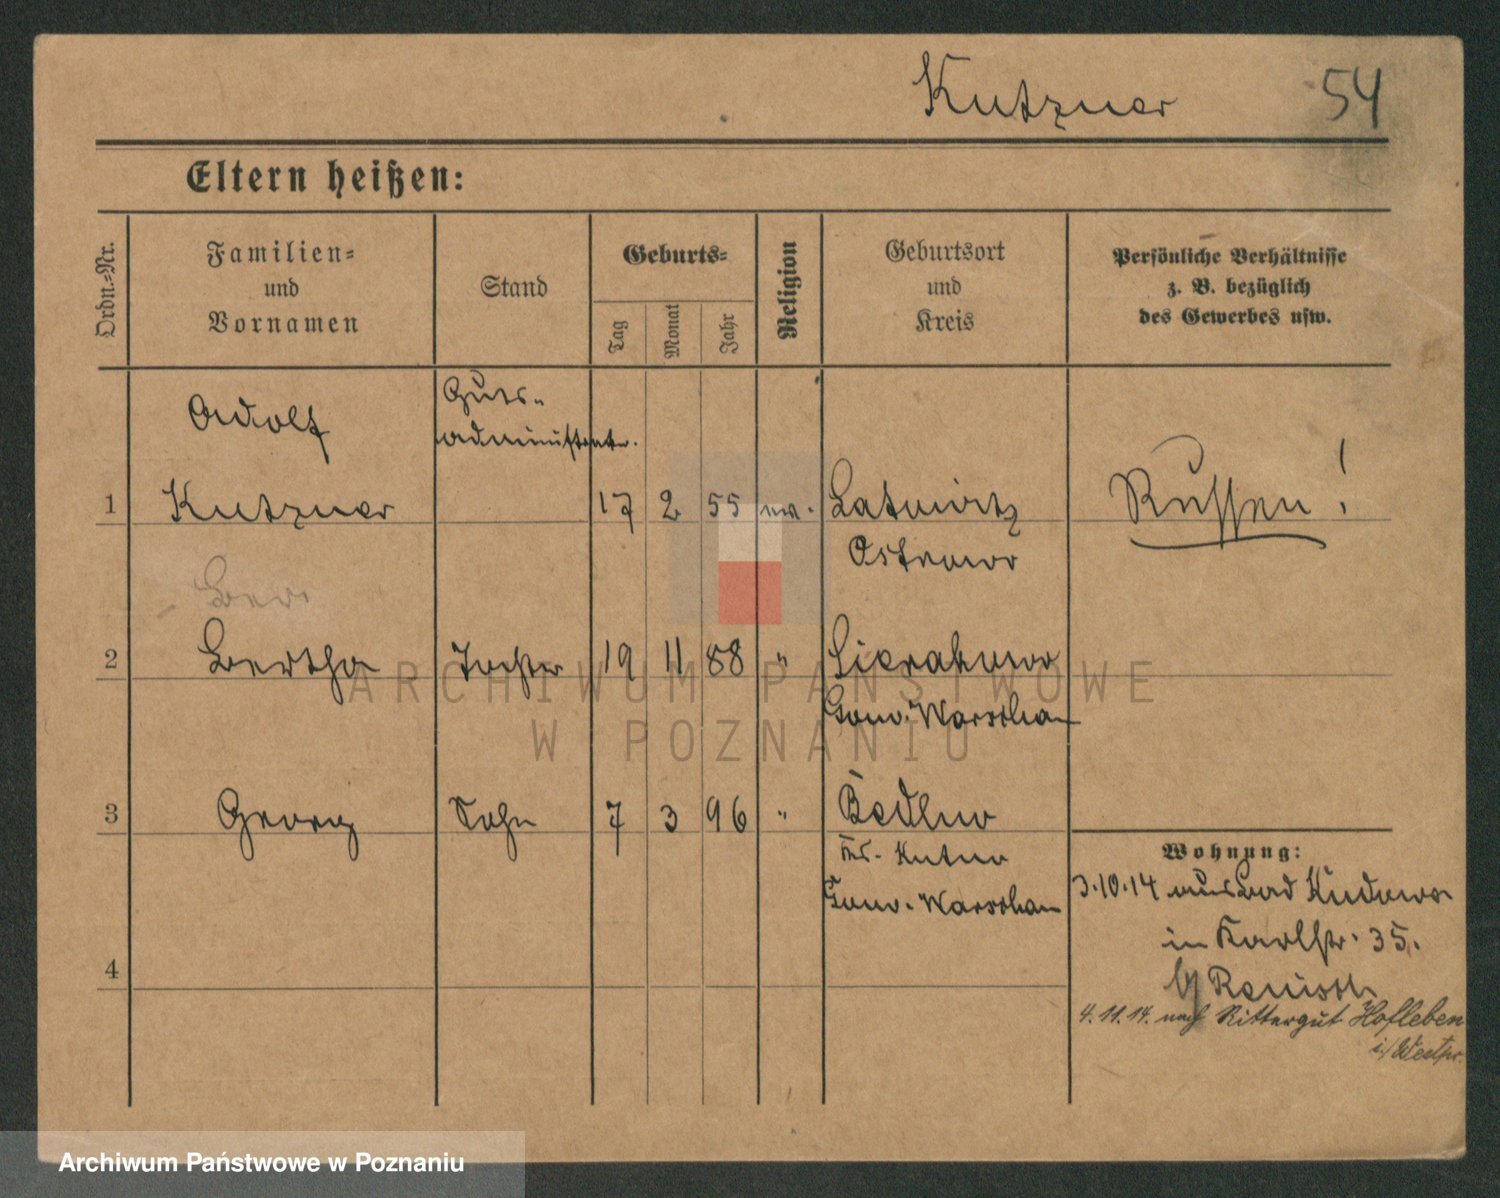 Kutzner 54
Eltern heißen:
Ordn.-Nr.
Familien-
und
Vornamen
Stand
Geburts-
Tag
Monat
Jahr
Religion
Geburtsort
und
Kreis
Persönliche Verhältnisse
z. B. bezüglich
des Gewerbes usw.
Adolf Guts-
administrator.
1 Kutzner 17 2 55 ev. Latowitz Russen!
Ostrowo
Ber
2 Bertha Tochter 19 11 88 " Sierakowo
Gouv. Warschau
3 Georg Sohn 7 3 96 " Bedlno
Krs. Kutno
Gouv. Warschau
Wohnung:
3.10.14 aus Bad Kudowa
in Karlstr. 35.
b/
4.11.14. nach Rittergut Hofleben
i/Westpr.
4
ARCHIWUM PAŃSTWOWE
W POZNANIU
Archiwum Państwowe w Poznaniu